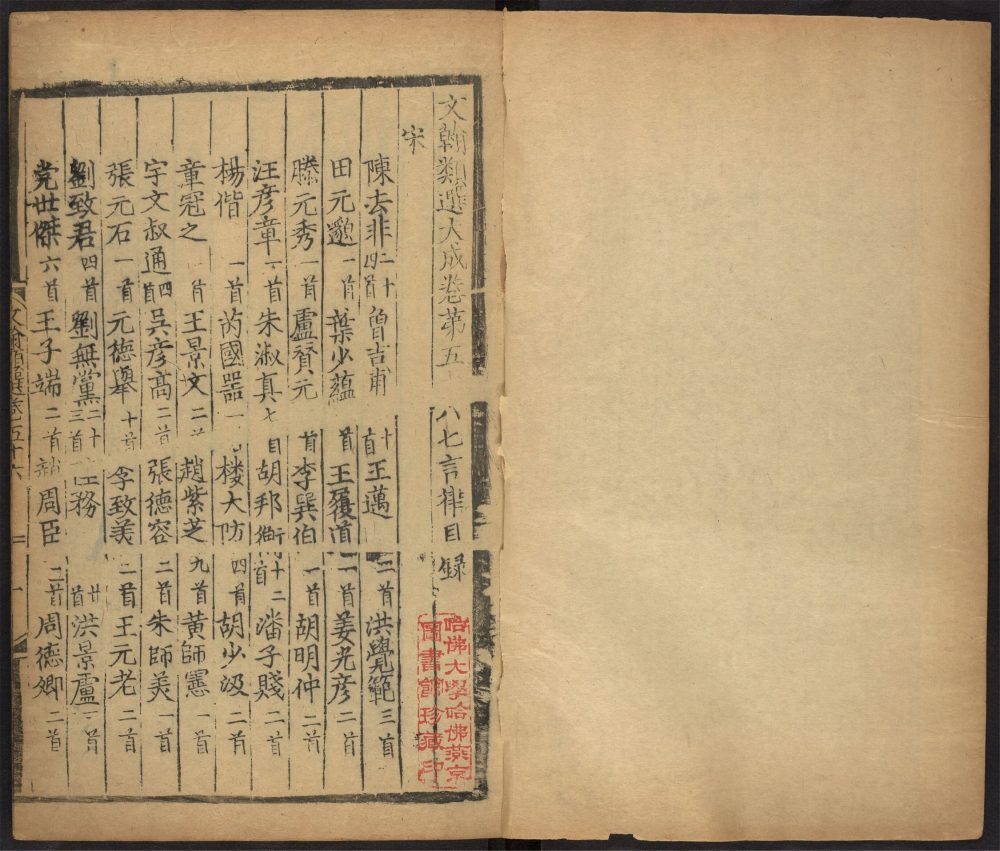 文翰類選大成卷第五十八七言律目錄
宋
陳去非二十四首 曾吉甫十首 王邁二首 洪覺範三首
田元邈一首 葉少蘊首 王履道二首 姜光彦二首
滕元秀一首 盧贊元首 李巽伯一首 胡明仲二首
汪彦章一首 朱淑真七首 胡邦衡十二首 潘子賤二首
楊偕一首 芮國噐一 楼大防四首 胡少汲二首
章冠之一首 王景文二 趙紫芝九首 黄師憲一首
宇文叔通四首 吳彦高二首 張德容二首 朱師美一首
張元石一首 元德舉十首 李致美二首 王元老二首
劉致君四首 劉無黨二十三首 務廿首 洪景盧一首
党世傑六首 王子端二首 周臣二首 周德卿二首
文翰類選卷五十六
哈佛大學哈佛燕京
圖書館珍藏印